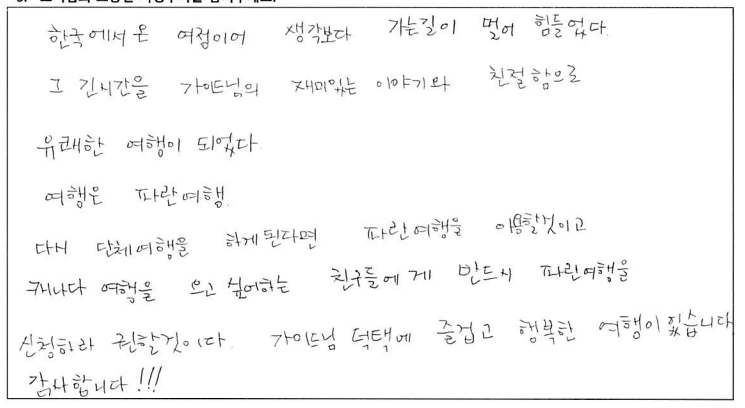 한국에서 온 여정이어 생각보다 가는길이 멀어 힘들었다.
그 긴시간을 가이드님의 재미있는 이야기와 친절함으로
유쾌한 여행이 되었다
여행은 파란여행.
다시 단체여행을 하게된다면 파란여행을 이용할것이고
캐나다 여행을 오고 싶어하는 친구들에게 반드시 파란여행을
신청하라 권할것이다. 가이드님 덕택에 즐겁고 행복한 여행이었습니다
감사합니다!!!